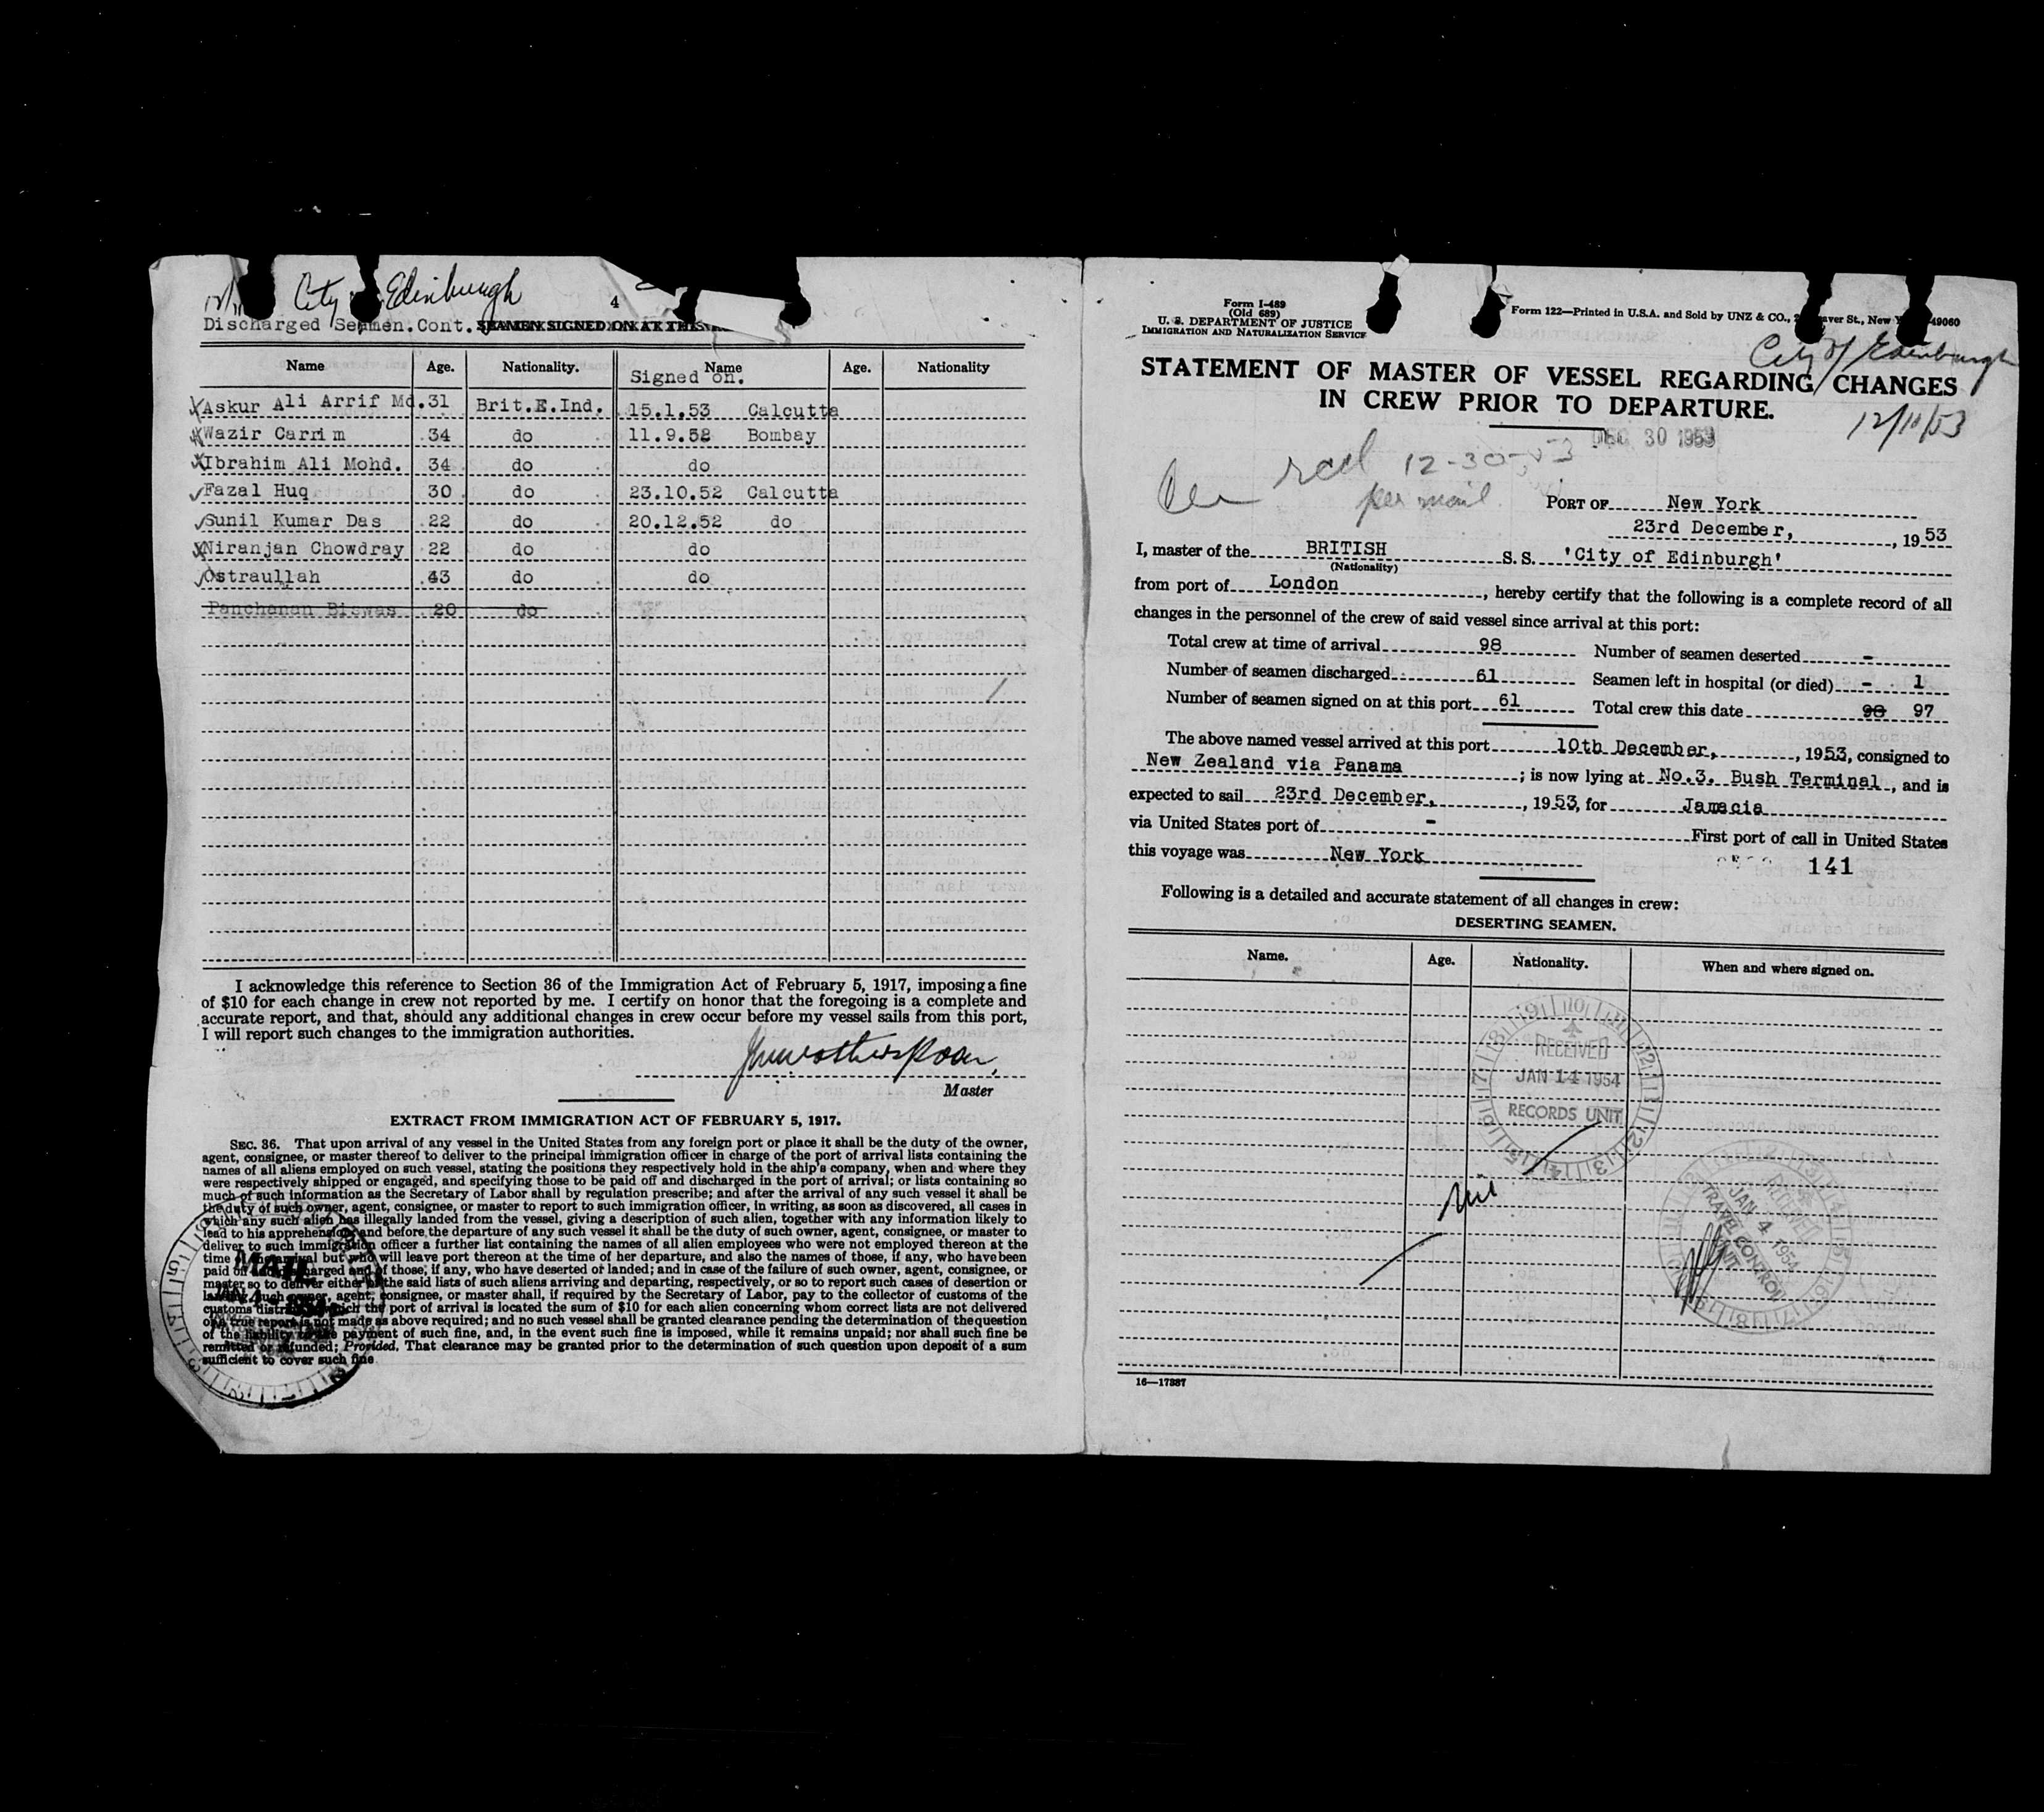 City Edinburgh
4
Discharged Seamen.Cont. SEAMEN SIGNED ON AT THIS
Name Age. Nationality. Name Age. Nationality
Signed on.
Askur Ali Arrif Md. 31 Brit.E.Ind. 15.1.53 Calcutta
Wazir Carrim 34 do 11.9.52 Bombay
Ibrahim Ali Mohd. 34 do do
Fazal Huq 30 do 23.10.52 Calcutta
Sunil Kumar Das 22 do 20.12.52 do
Niranjan Chowdray 22 do do
Ostraullah 43 do do
Panchanan Biswas 20 do
I acknowledge this reference to Section 36 of the Immigration Act of February 5, 1917, imposing a fine
of $10 for each change in crew not reported by me. I certify on honor that the foregoing is a complete and
accurate report, and that, should any additional changes in crew occur before my vessel sails from this port,
I will report such changes to the immigration authorities.
Master
EXTRACT FROM IMMIGRATION ACT OF FEBRUARY 5, 1917.
SEC. 36. That upon arrival of any vessel in the United States from any foreign port or place it shall be the duty of the owner,
agent, consignee, or master thereof to deliver to the principal immigration officer in charge of the port of arrival lists containing the
names of all aliens employed on such vessel, stating the positions they respectively hold in the ship's company, when and where they
were respectively shipped or engaged, and specifying those to be paid off and discharged in the port of arrival; or lists containing so
much of such information as the Secretary of Labor shall by regulation prescribe; and after the arrival of any such vessel it shall be
the duty of such owner, agent, consignee, or master to report to such immigration officer, in writing, as soon as discovered, all cases in
which any such alien has illegally landed from the vessel, giving a description of such alien, together with any information likely to
lead to his apprehension; and before the departure of any such vessel it shall be the duty of such owner, agent, consignee, or master to
deliver to such immigration officer a further list containing the names of all alien employees who were not employed thereon at the
time of the arrival but who will leave port thereon at the time of her departure, and also the names of those, if any, who have been
paid off and discharged and of those, if any, who have deserted or landed; and in case of the failure of such owner, agent, consignee, or
master so to deliver either of the said lists of such aliens arriving and departing, respectively, or so to report such cases of desertion or
landing, such owner, agent, consignee, or master shall, if required by the Secretary of Labor, pay to the collector of customs of the
customs district in which the port of arrival is located the sum of $10 for each alien concerning whom correct lists are not delivered
or a true report is not made as above required; and no such vessel shall be granted clearance pending the determination of the question
of the liability to the payment of such fine, and, in the event such fine is imposed, while it remains unpaid; nor shall such fine be
remitted or refunded; Provided, That clearance may be granted prior to the determination of such question upon deposit of a sum
sufficient to cover such fine
MAIL
JAN 4
Form I-489
(Old 689)
U. S. DEPARTMENT OF JUSTICE
IMMIGRATION AND NATURALIZATION SERVICE
Form 122—Printed in U.S.A. and Sold by UNZ & CO., St., New 49060
City of Edinburgh
STATEMENT OF MASTER OF VESSEL REGARDING CHANGES
IN CREW PRIOR TO DEPARTURE.
12/10/53
DEC 30 1953
recd 12-30-53
per mail
PORT OF New York
23rd December, , 1953
I, master of the BRITISH S. S. 'City of Edinburgh'
(Nationality)
from port of London , hereby certify that the following is a complete record of all
changes in the personnel of the crew of said vessel since arrival at this port:
Total crew at time of arrival 98 Number of seamen deserted -
Number of seamen discharged 61 Seamen left in hospital (or died) - 1
Number of seamen signed on at this port 61 Total crew this date 98 97
The above named vessel arrived at this port 10th December, , 1953, consigned to
New Zealand via Panama ; is now lying at No.3. Bush Terminal , and is
expected to sail 23rd December, , 1953, for Jamacia
via United States port of - First port of call in United States
this voyage was New York
141
Following is a detailed and accurate statement of all changes in crew:
DESERTING SEAMEN.
Name. Age. Nationality. When and where signed on.
RECEIVED
JAN 14 1954
RECORDS UNIT
Nil
RECEIVED
JAN 4 1954
TRAVEL CONTROL
UNIT
16—17337